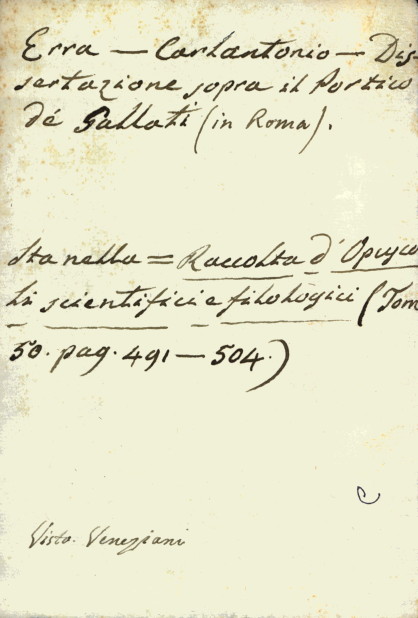 Erra — Carlantonio — Dis-
sertazione sopra il Portico
dé Gallati (in Roma).
Sta nella = Raccolta d' Opusco
li scientifici e filologici (Tom
50. pag. 491 — 504.)
C
Visto. Veneziani